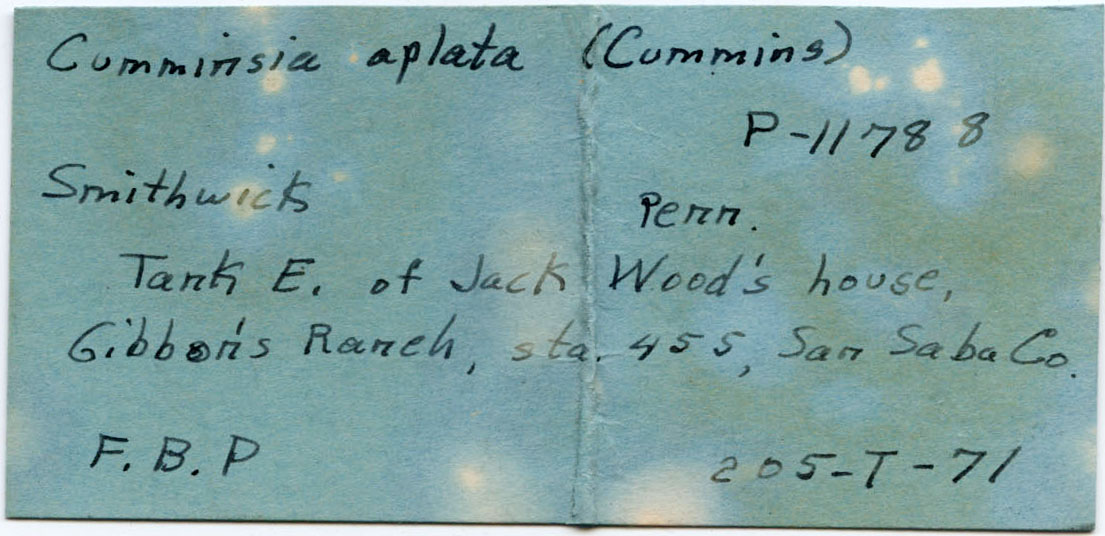 Cumminsia aplata (Cummins)
P-11788
Smithwick Penn.
Tank E. of Jack Wood's house,
Gibbon's Ranch, sta. 455, San Saba Co.
F. B. P 205-T-71